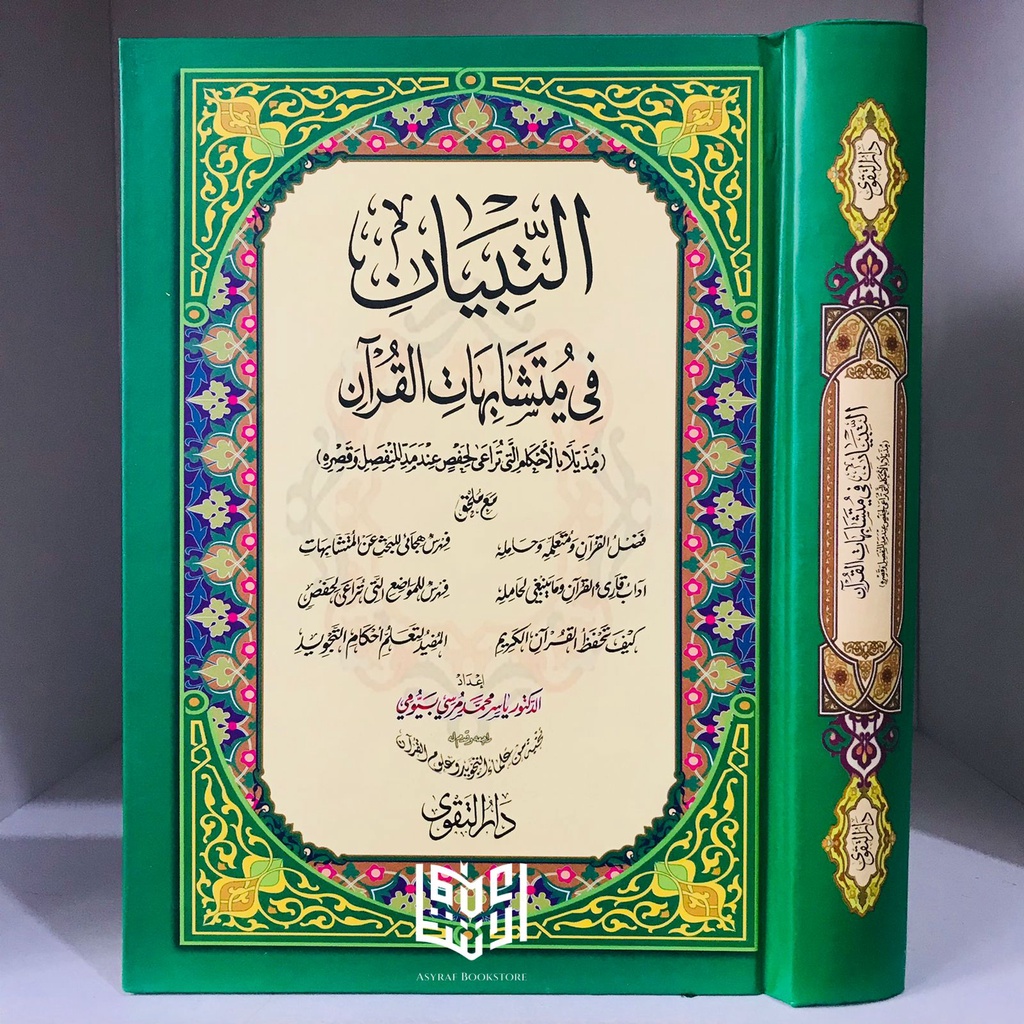 التِّبْيَان
فِي مُتَشَابِهَاتِ الْقُرْآنِ
(مُذَيَّلًا بِالْأَحْكَامِ الَّتِي تُرَاعَى لِحَفْصٍ عِنْدَ مَدِّ الْمُنْفَصِلِ وَقَصْرِهِ)
مَعَ مُلْحَقِ
فَضْلُ القُرآنِ وَمُتَعَلِّمِهِ وَحَامِلِهِ
فِهْرِسْ هِجَائِي لِلْبَحْثِ عَنِ المُتَشَابِهَاتِ
آدَابُ قَارِئ القُرآنِ وَمَا يَنْبَغِي لِحَامِلِهِ
فِهْرِسْ لِلْمَوَاضِعِ الَّتِي تُرَاعَى لِحَفْصٍ
كَيْفَ تَحْفَظُ القُرْآنَ الكَرِيمِ
المُفِيدْ لِتَعَلُّمِ أَحْكَامِ التَّجْوِيدِ
إِعْدَادْ
الدكتور يَاسِر محمَّد مُرسِي بَيُّومِي
راجعه وقدم له
نخبة من علماء التجويد وعلوم القرآن
دَارُ التَّقْوَى
دَارُ التَّقْوَى
التِّبْيَان فِي مُتَشَابِهَاتِ الْقُرْآنِ
(مُذَيَّلًا بِالْأَحْكَامِ الَّتِي تُرَاعَى لِحَفْصٍ عِنْدَ مَدِّ الْمُنْفَصِلِ وَقَصْرِهِ)
دَارُ التَّقْوَى
ASYRAF BOOKSTORE